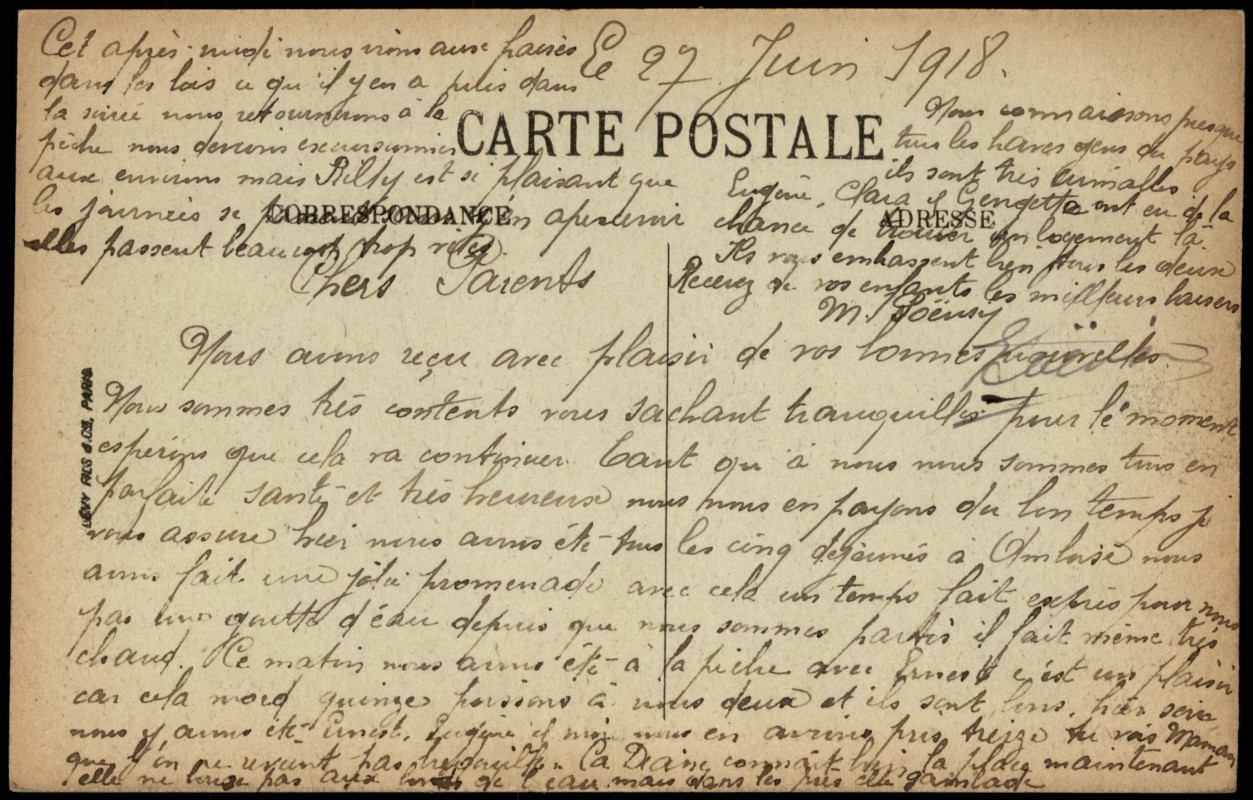 Le 27 Juin 1918.
CARTE POSTALE
CORRESPONDANCE
ADRESSE
LÉVY FILS & Cie, PARIS
Chers Parents
Nous avons reçu avec plaisir de vos bonnes nouvelles.
Nous sommes très contents vous sachant tranquilles pour le moment
espérons que cela va continuer. Tant qu'à nous nous sommes tous en
parfaite santé et très heureux nous nous en payons du bon temps je
vous assure hier nous avons été tous les cinq déjeunés à Amboise nous
avons fait une jolie promenade avec cela un temps fait exprès pour nous
pas une goutte d'eau depuis que nous sommes partis il fait même très
chaud. Ce matin nous avons été à la pêche avec Ernest c'est un plaisir
car cela mord quinze poissons à nous deux et ils sont bons, hier soir
nous y avons été Ernest, Eugène et moi nous en avions pris treize tu vois Maman
que l'on ne revient pas bredouille. La Diane connait bien la place maintenant
elle ne bouge pas aux de l'eau mais dans les près elle gambade
Cet après-midi nous irons aux fraises
dans les bois ce qu'il y en a puis dans
la soirée nous retournerons à la
pêche nous devions excursionner
aux environs mais Rilly est si plaisant que
les journées se sans s'en apercevoir
elles passent beaucoup trop vite.
Nous connaissons presque
tous les braves gens du pays
ils sont très aimables
Eugène, Clara et Georgette ont eu de la
chance de trouver un logement là.
Ils vous embrassent bien tous les deux
Recevez de vos enfants les meilleurs baisers
M.